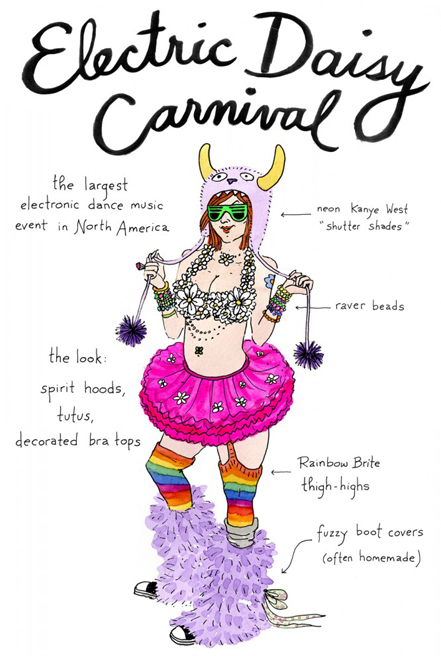 Electric Daisy
Carnival
the largest
electronic dance music
event in North America
neon Kanye West
"shutter shades"
raver beads
the look:
spirit hoods,
tutus,
decorated bra tops
Rainbow Brite
thigh-highs
fuzzy boot covers
(often homemade)